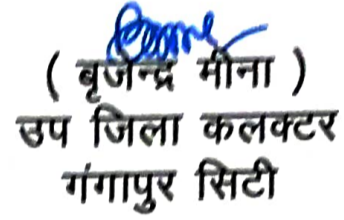 ( बृजेन्द्र मीना )
उप जिला कलक्टर
गंगापुर सिटी